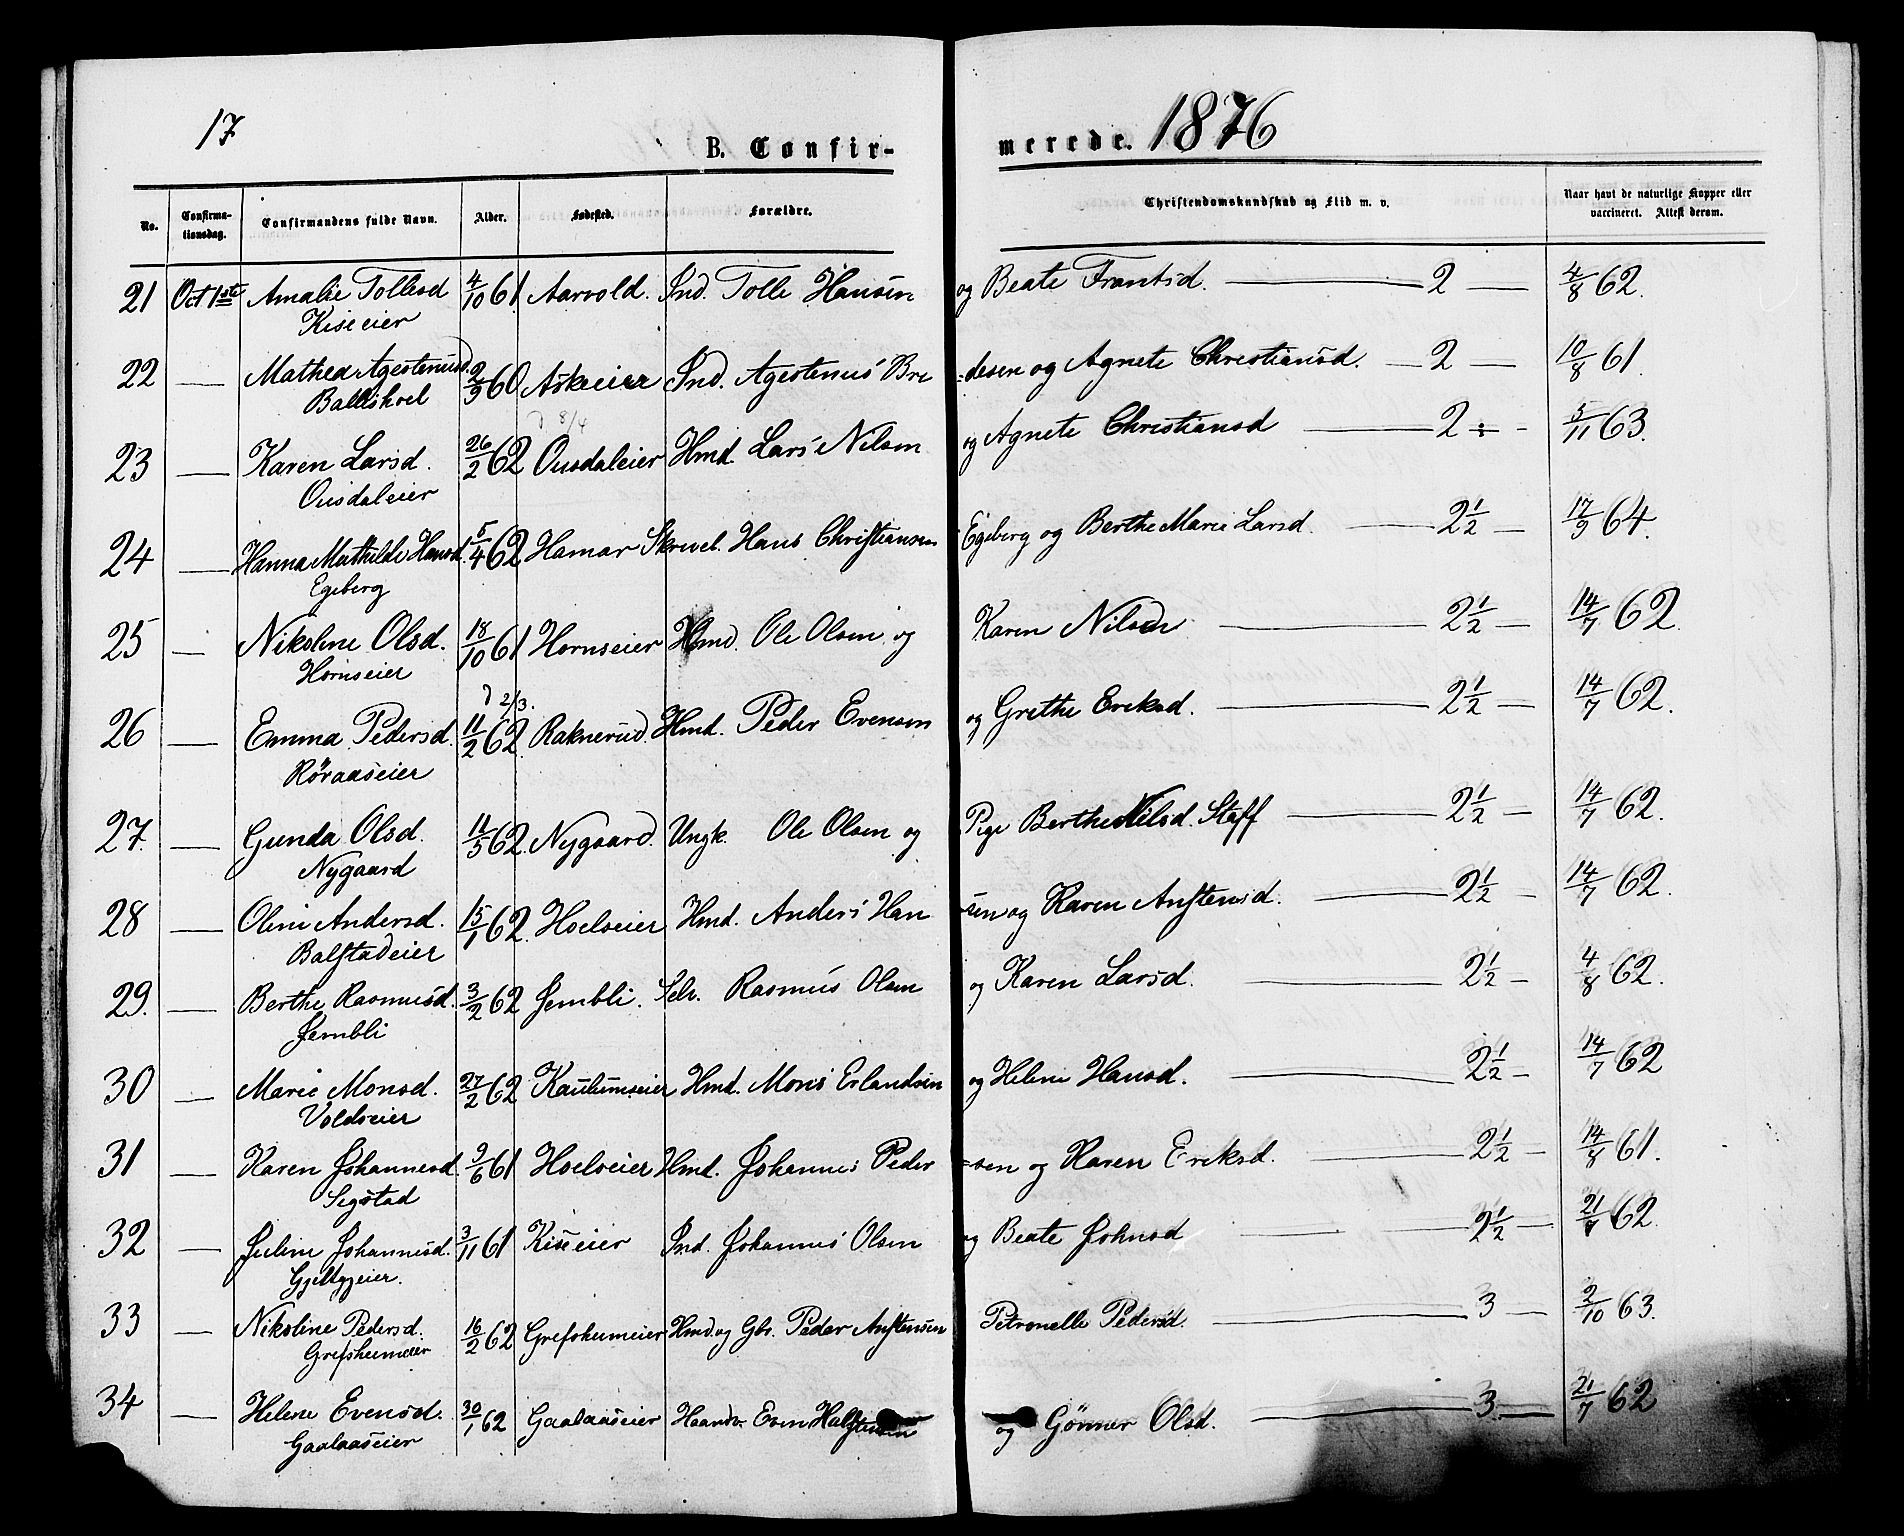 17
B. Confir-
merede. 1876
No. Confirma-tionsdag. Confirmandens fulde Navn. Alder. Fødested. Forældre. Christendomskundskab og Flid m. v. Naar havt de naturlige Kopper eller vaccineret. Attest derom.
21 Oct 1ste Amalie Tollesd 4/10 61 Aarvold. Ind. Tolle Hansen og Beate Frantsd. 2 4/8 62.
Kiseeier
22 — Mathea Agestenusd. 2/9 60 Askeeier Ind. Agestenus Bre =desen og Agnete Christiansd. 2 10/8 61.
Balkshoel
d 8/4
23 — Karen Larsd. 26/2 62 Ousdaleier Hmd. Lars Nilsen og Agnete Christiansd 2 5/11 63.
Ousdaleier
24 — Hanna Mathilde Hansd. 5/4 62 Hamar Skrevel. Hans Christiansen Egeberg og Berthe Marie Larsd. 2 1/2 17/9 64.
Egeberg
25 — Nikoline Olsd. 18/10 61 Hornseier Hmd. Ole Olsen og Karen Nilsdr 2 1/2 14/7 62.
Hornseier
d 2/3.
26 — Emma Pedersd. 11/2 62. Raknerud. Hmd. Peder Evensen og Grethe Eriksd. 2 1/2 14/7 62.
Røraaseier
27. — Gunda Olsd. 11/5 62. Nygaard. Ungk. Ole Olsen og Pige Berthe Nilsd. Staff 2 1/2 14/7 62.
Nygaard
28 — Oline Andersd. 15/1 62. Hoelseier Hmd. Anders Han =sen og Karen Anstensd. 2 1/2 14/7 62.
Balstadeier
29. — Berthe Rasmusd. 3/2 62 Jembli. Selv. Rasmus Olsen og Karen Larsd. 2 1/2 4/8 62.
Jembli
30 — Marie Monsd. 27/2 62 Kaulumseier Hmd. Mons Erlandsen og Helene Hansd. 2 1/2 14/7 62
Voldseier
31 — Karen Johannesd 9/6 61 Hoelseier Hmd. Johannes Peder =sen og Karen Eriksd. 2 1/2 14/8 61.
Segstad
32 — Juline Johannesd. 3/11 61 Kiseeier Ind. Johannes Olsen og Beate Johnsd 2 1/2 21/7 62.
33 — Nikoline Pedersd. 16/2 62 Grefsheimeier Hmd. og Gbr. Peder Anstensen Petronelle Pedersd. 3 2/10 63.
Grefsheimeier
34 — Helene Evensd. 30/1 62 Gaalaaseier Haandv. Even Halstensen og Gønner Olsd. 3. 21/7 62
Gaalaaseier